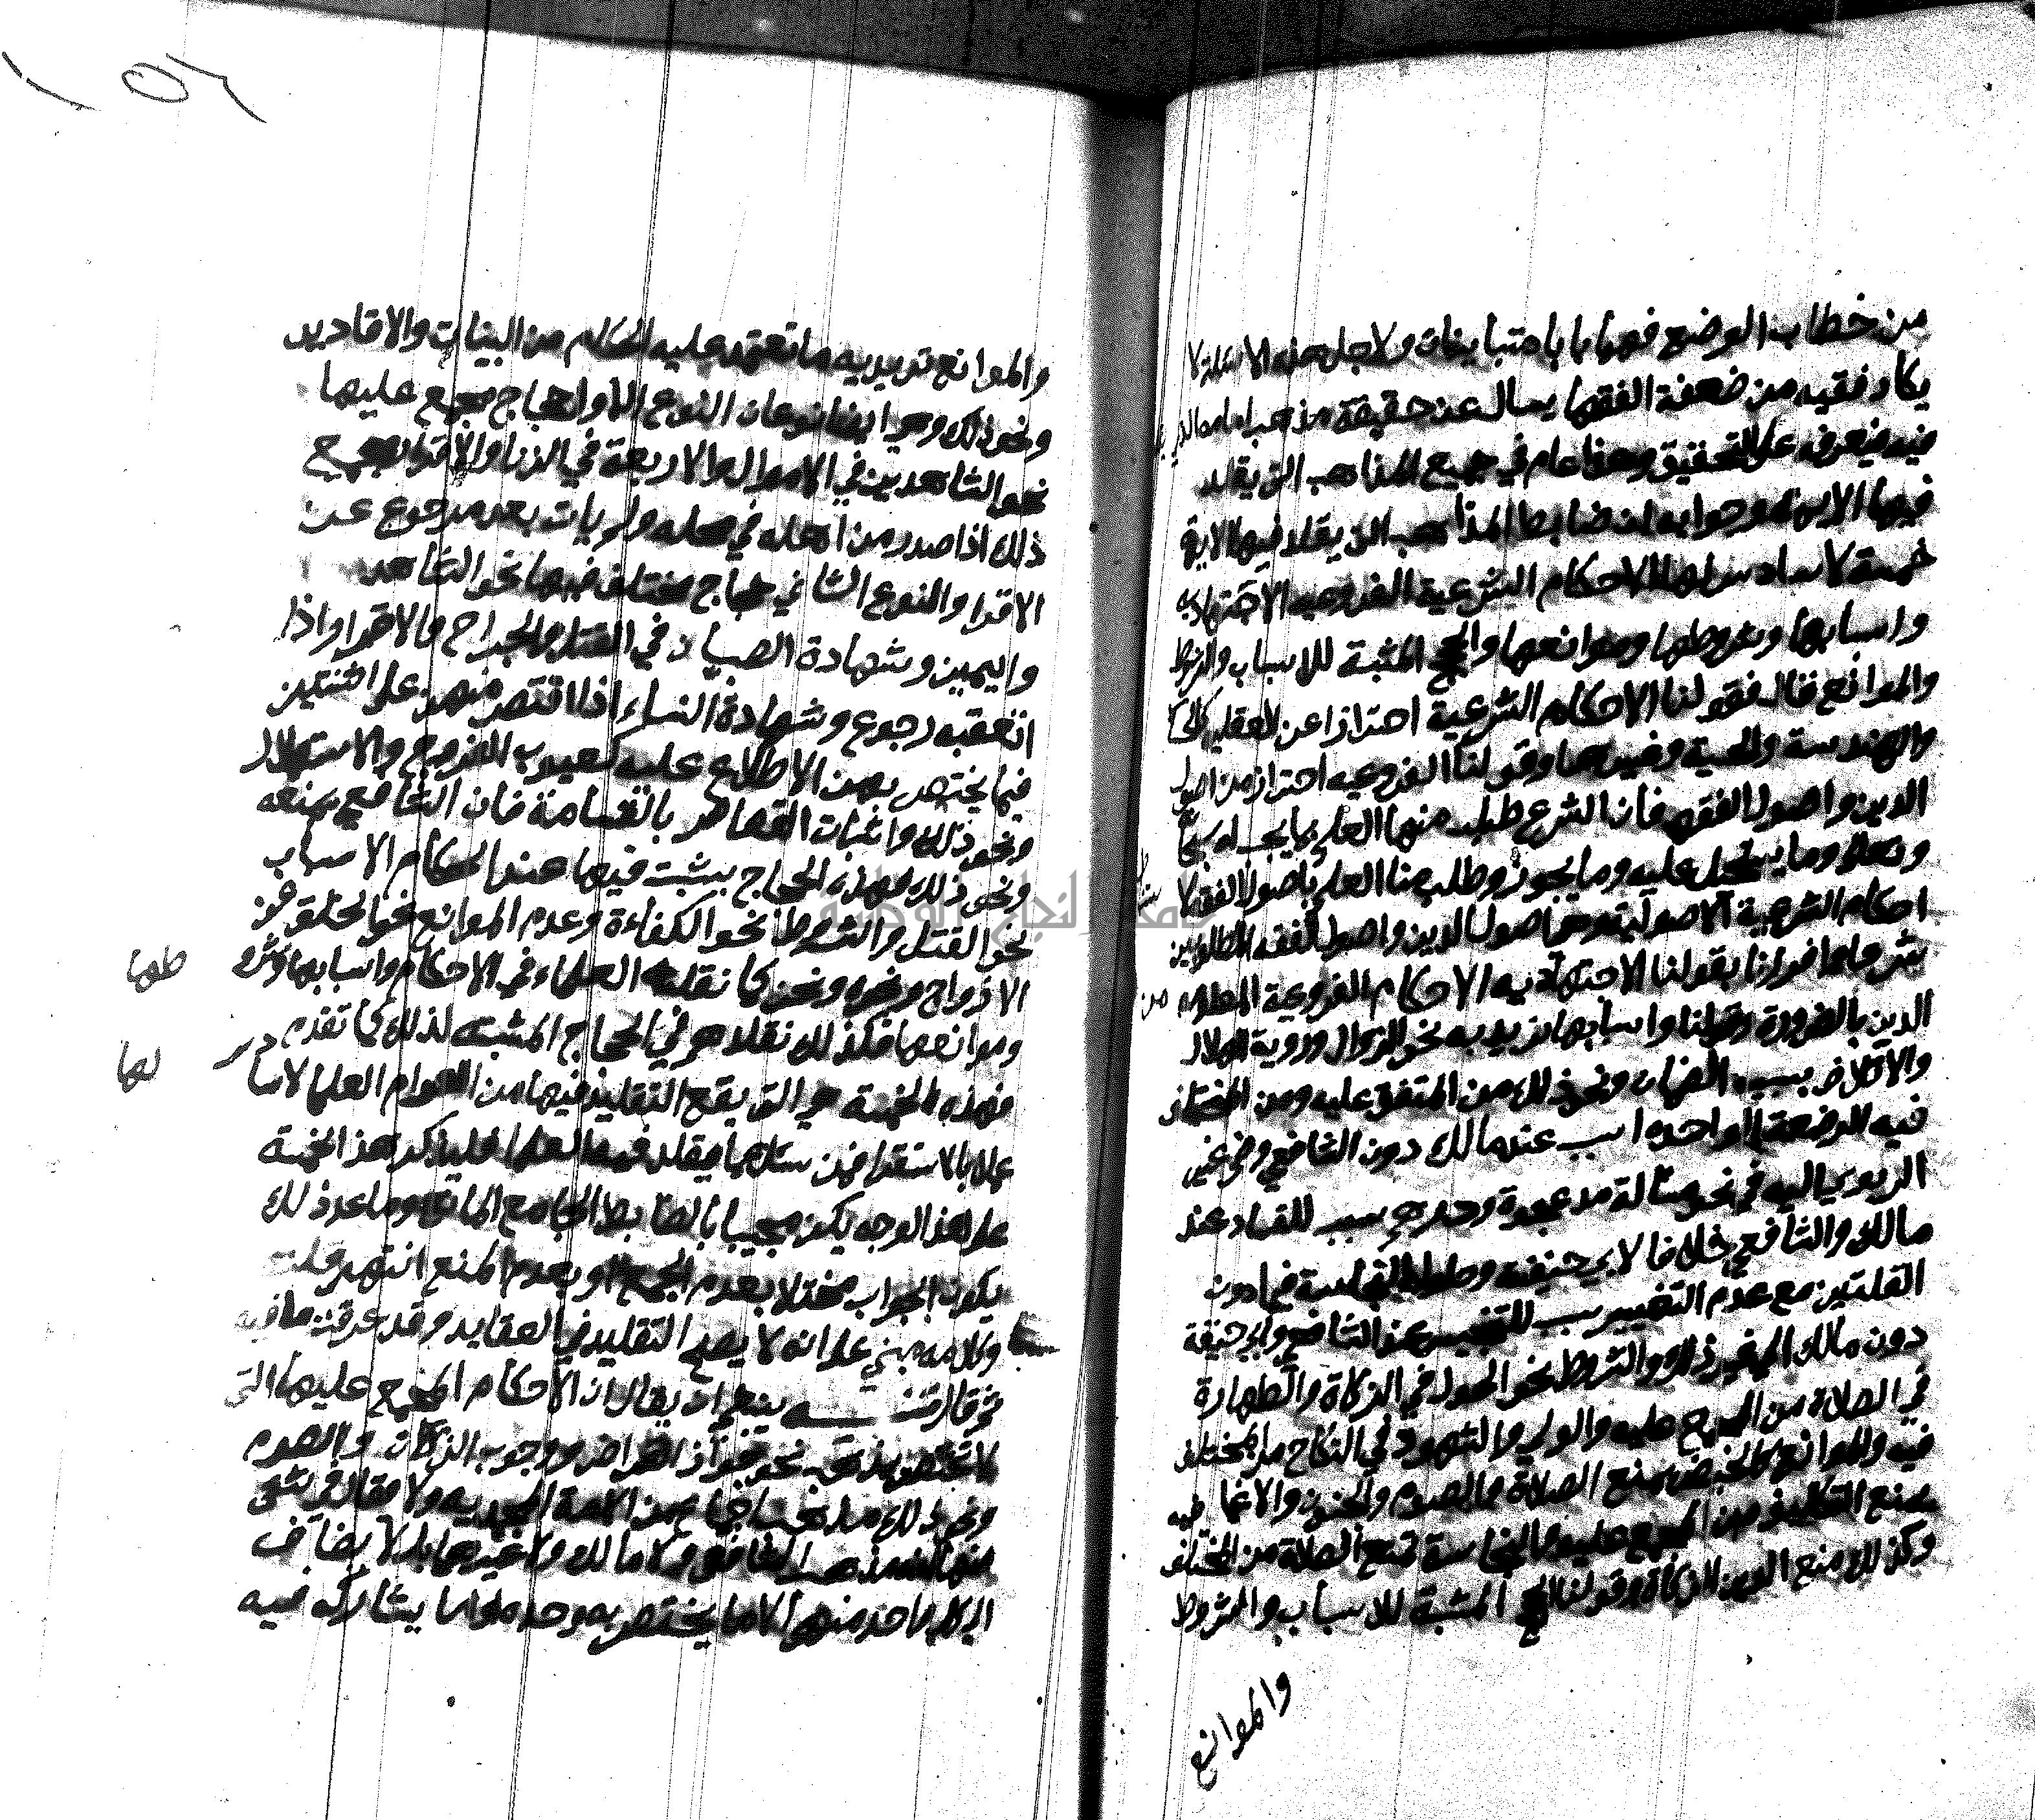 من خطاب الوضع فهما بابان متباينان ولاجل هذه الاسئلة لا
يكاد فقيه من ضعفة الفقها يسال عن حقيقة مذهب امامه الذي
فيه فيعرفه على التحقيق وهذا عام في جميع المذاهب التي يقلد
فيها الايمة وجوابه ان ضابط المذاهب التي يقلد فيها الايمة
خمسة لا سادس لها الاحكام الشرعية الفروعيه الاجتهاديه
واسبابها وشروطها وموانعها والحجج المثبة للاسباب والشروط
والموانع قال فقولنا الاحكام الشرعية احترازا عن العقلية كالحساب
والهندسة والحسية وغيرهما وقولنا الفروعيه احترازا من اصول
الدين واصول الفقه فان الشرع طلب منها العلم بما يجب له سبحانه
وتعالى وما يستحيل عليه وما يجوز وطلب منا العلم باصول الفقه لا
احكام الشرعية الاصولية وهي اصول الدين واصول الفقه المطلوبين
شرعا واحترزنا بقولنا الاجتهاديه الاحكام الفروعية المعلومه من
الدين بالضرورة وقولنا واسبابها نريد به نحو الزوال ورؤية الهلال
والاتلاف سبب الضمان ونحو ذلك من المتفق عليه ومن المختلف
فيه الرضعة الواحدة سبب عند مالك دون الشافعي وضم غير
الربوي اليه في نحو مسالة مد عجوة ودرهم سبب للفساد عند
مالك والشافعي خلافا لابي حنيفة وحلول النجاسة فيما دون
القلتين مع عدم التغيير سبب للتنجيس عند الشافعي وابي حنيفة
دون مالك الى غير ذلك والشروط نحو الحول في الزكاة والطهارة
في الصلاة من المجمع عليه والولي والشهود في النكاح من المختلف
فيه والموانع كالحيض يمنع الصلاة والصوم والجنون والاغما فيه
يمنع التكليف من المجمع عليه والنجاسة تمنع الصلاة من المختلف
وكذلك منع الدين الزكاة وقولنا الحجج المثبة للاسباب والشروط
والموانع
والموانع نريد به ما تعتمد عليه الحكام من البينات والاقارير
ونحو ذلك وهو ايضا نوعان النوع الاول حجاج مجمع عليها
نحو الشاهدين في الاموال والاربعة في الزنا والاقرار بجميع
ذلك اذا صدر من اهله في محله ولم يات بعده رجوع عن
الاقرار والنوع الثاني حجاج مختلف فيها نحو الشاهد
واليمين وشهادة الصبيان في القتل والجراح والاقرار اذا
اتعقبه رجوع وشهادة النساء اذا اقتصر منهن على اثنتين
فيما يختص بهن الاطلاع عليه كعيوب الفروج والاستهلال
ونحو ذلك واثبات القصاص بالقسامة فان الشافعي يمنعه
ونحو ذلك فهذه الحجاج يثبت فيها عند الحكام الاسباب
نحو القتل والشروط نحو الكفاءة وعدم الموانع نحو الخلو عن
الازواج ونحوه ونحن كما نقلد العلماء في الاحكام واسبابها وشرو طها
وموانعها فكذلك نقلدهم في الحجاج المثبته لذلك كما تقدم
فهذه الخمسة هي التي يقع التقليد فيها من العوام العلما لا سادس لها
عملا بالاستقرا فمن سئل عما يقلد فيه العلما فليذكر هذ الخمسة
على هذ الوجه يكون مجيبا بالضابط الجامع المانع وما عد ذلك
يكون الجواب مختلا بعدم الجمع او بعدم المنع انتهى قلت
وكلامه مبني على انه لا يصح التقليد في العقايد وقد عرفت ما فيه
ثم قال تنبيه ينبغي ان يقال ان الاحكام المجمع عليها التي
لا تختص بمذهب نحو جواز القراض ووجوب الزكات والصوم
ونحو ذلك من المجمع عليه من الامة المحمديه ولا يقال في شى
منها انه مذهب الشافعي ولا مالك ولا غيرهما بل لا يضاف
الى كل واحد منهم الا ما يختص به وحده واما يشاركه فيه